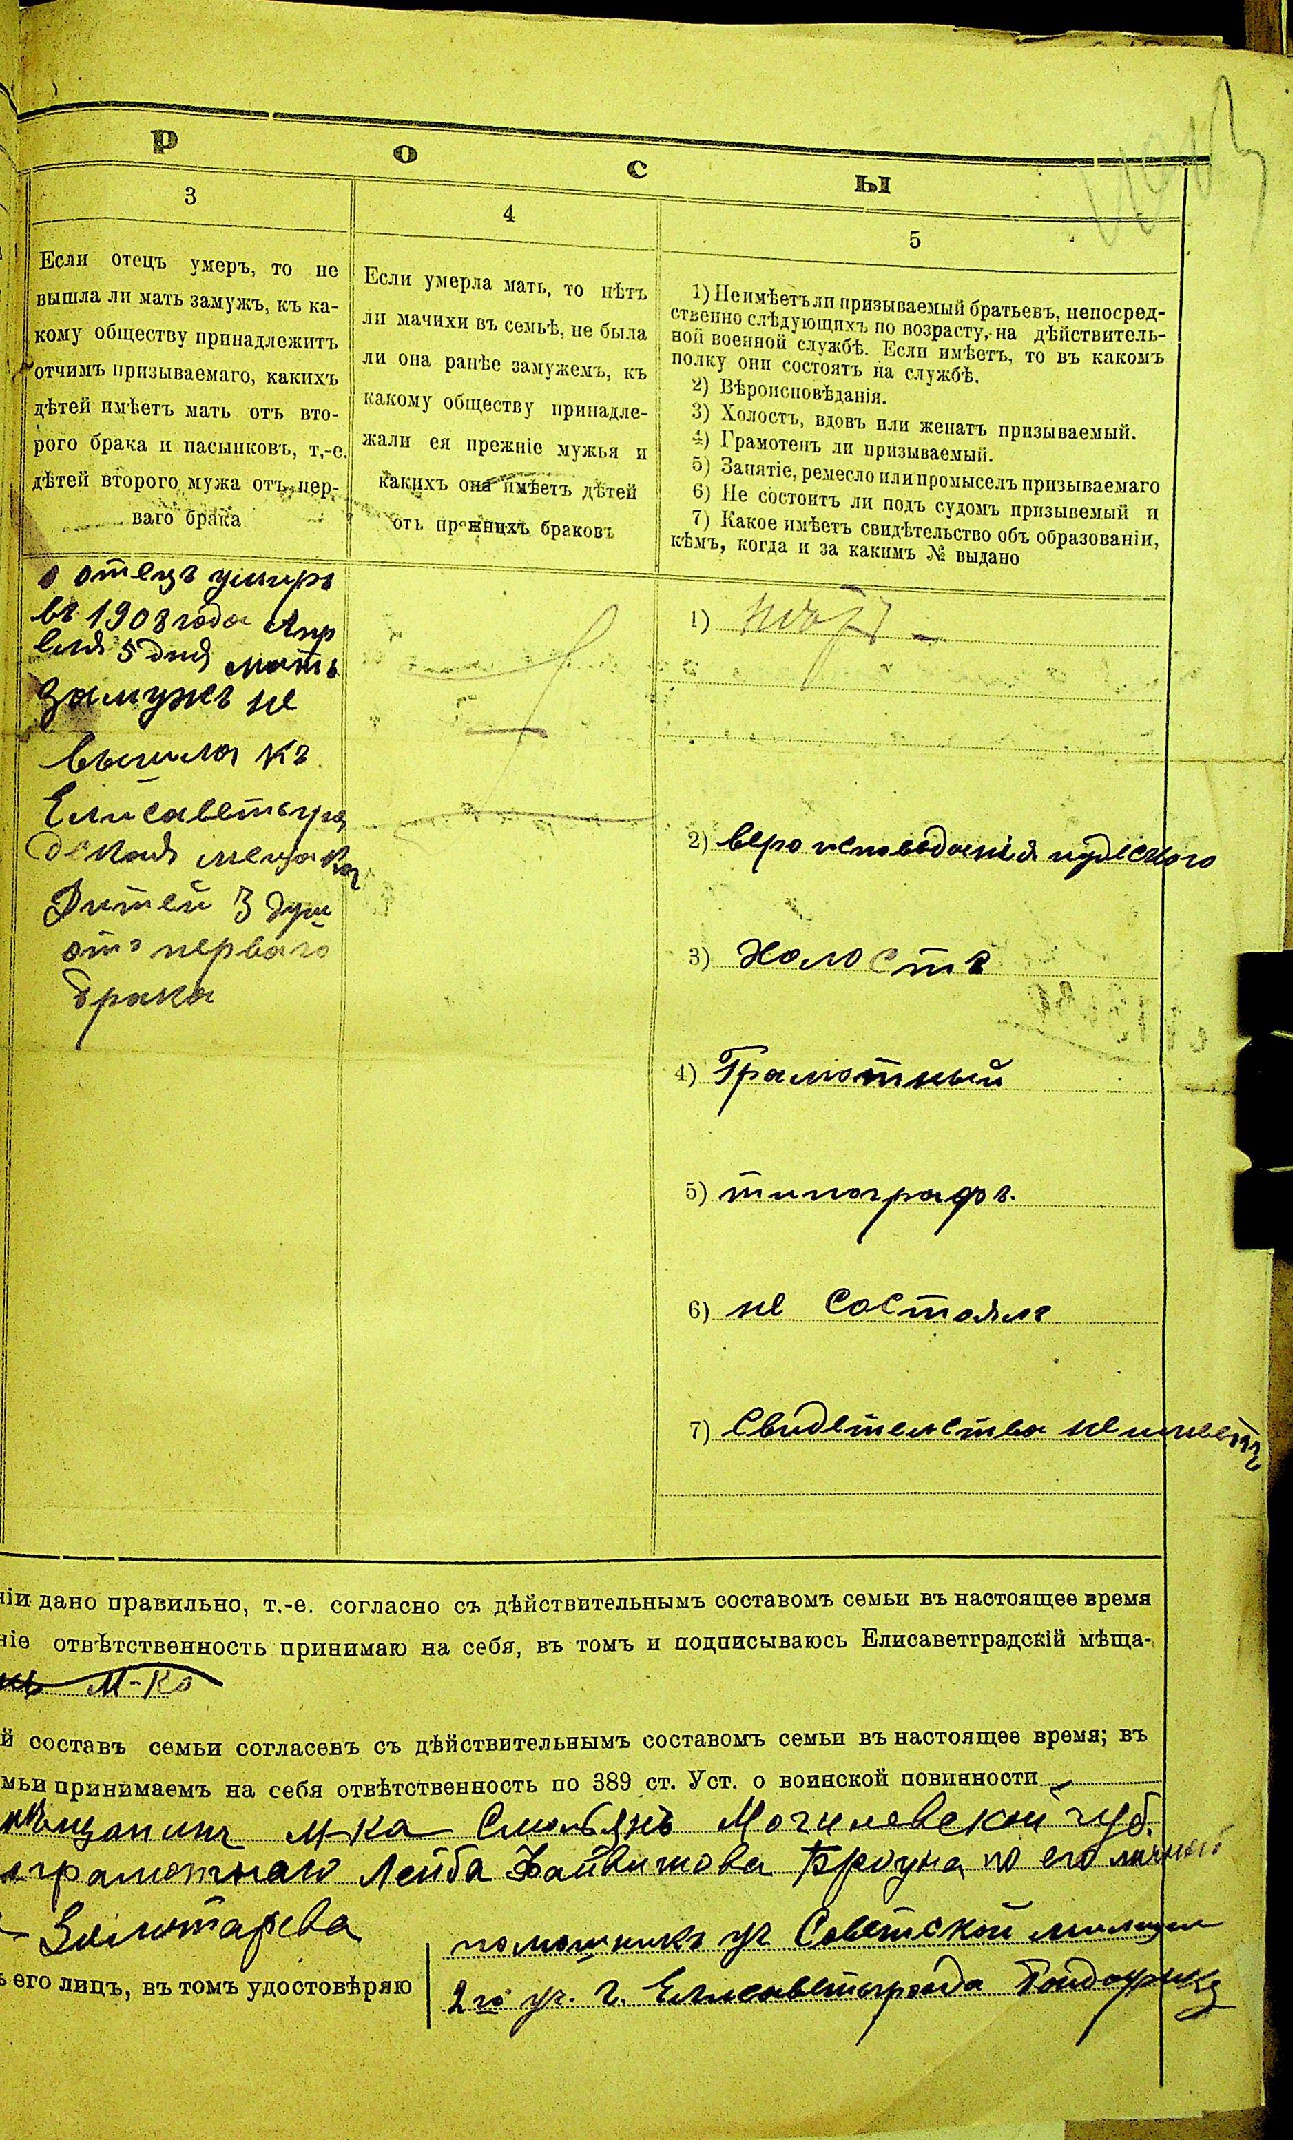 Р О С Ы
3
Если отецъ умеръ, то не
вышла ли мать замужъ, къ ка-
кому обществу принадлежитъ
отчимъ призываемаго, какихъ
дѣтей имѣетъ мать отъ вто-
рого брака и пасынковъ, т.-е.
дѣтей второго мужа отъ пер-
ваго брака
отецъ умиръ
въ 1908 года Апр
еля 5 дня мать
замужъ не
вышла къ
Елисаветъгра
дская мещанка
Дитей 3 душ
отъ перваго
брака
4
Если умерла мать, то нѣтъ
ли мачихи въ семьѣ, не была
ли она ранѣе замужемъ, къ
какому обществу принадле-
жали ея прежніе мужья и
какихъ она имѣетъ дѣтей
отъ прежнихъ браковъ
5
1) Не имѣетъ ли призываемый братьевъ, непосред-
ственно слѣдующихъ по возрасту, на дѣйствитель-
ной военной службѣ. Если имѣетъ, то въ какомъ
полку они состоятъ на службѣ.
2) Вѣроисповѣданія.
3) Холостъ, вдовъ или женатъ призываемый.
4) Грамотенъ ли призываемый.
5) Занятіе, ремесло или промыселъ призываемаго
6) Не состоитъ ли подъ судомъ призываемый и
7) Какое имѣетъ свидѣтельство объ образованіи,
кѣмъ, когда и за какимъ № выдано
1)
2) вероисповеданія иудеского
3) Холостъ
4) Грамотный
5) типографъ.
6) не состоялъ
7) Свидетельства не имеетъ
ніи дано правильно, т.-е. согласно съ дѣйствительнымъ составомъ семьи въ настоящее время
ніе отвѣтственность принимаю на себя, въ томъ и подписываюсь Елисаветградскій мѣща-
М-ко
й составъ семьи согласенъ съ дѣйствительнымъ составомъ семьи въ настоящее время; въ
мьи принимаемъ на себя отвѣтственность по 389 ст. Уст. о воинской повинности
мѣщанинъ м-ка Смольянъ Могилевской губ.
грамотнаго Лейба Файвишова Броуна, по его личной
Золотарева
помошникъ уч Советской милиции
ь его лицъ, въ томъ удостовѣряю
2го уч. г. Елисаветъграда